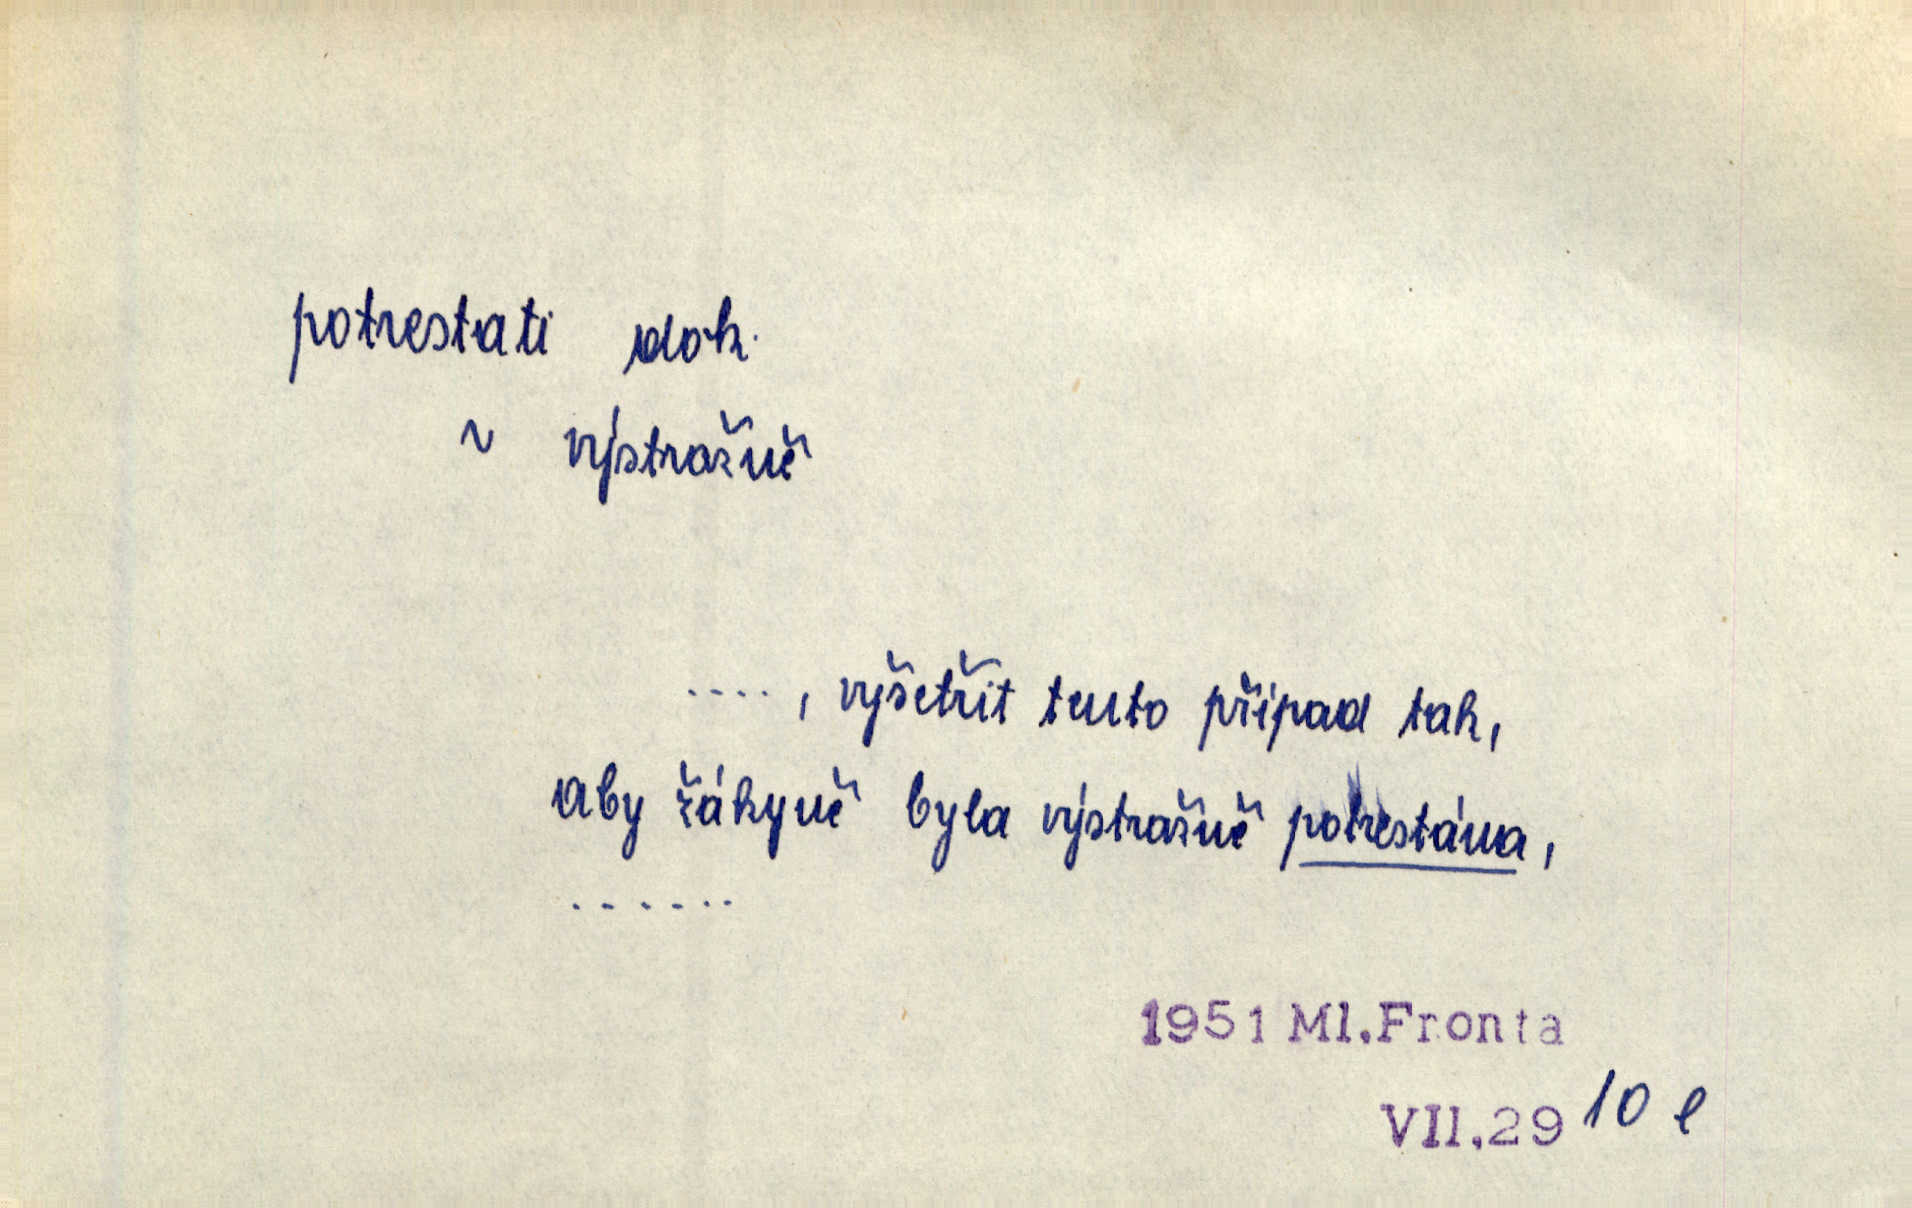 potrestati dok.
~ výstražně
...., vyšetřit tento případ tak,
aby žákyně byla výstražně potrestána,
......
1951 Ml.Fronta
VII.29 10 e